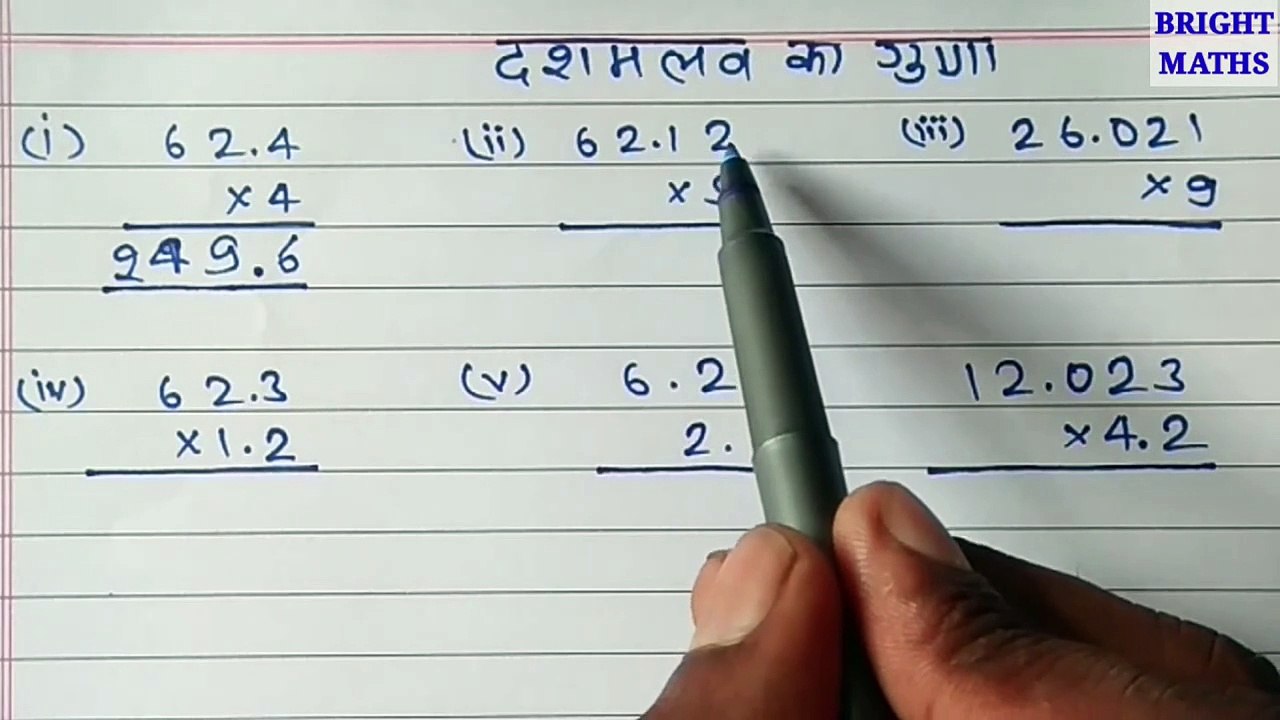 BRIGHT
MATHS
दशमलव का गुणा
(i) 62.4
×4
249.6
(ii) 62.12
×
(iii) 26.021
×9
(iv) 62.3
×1.2
(v) 6.2
2.
12.023
×4.2